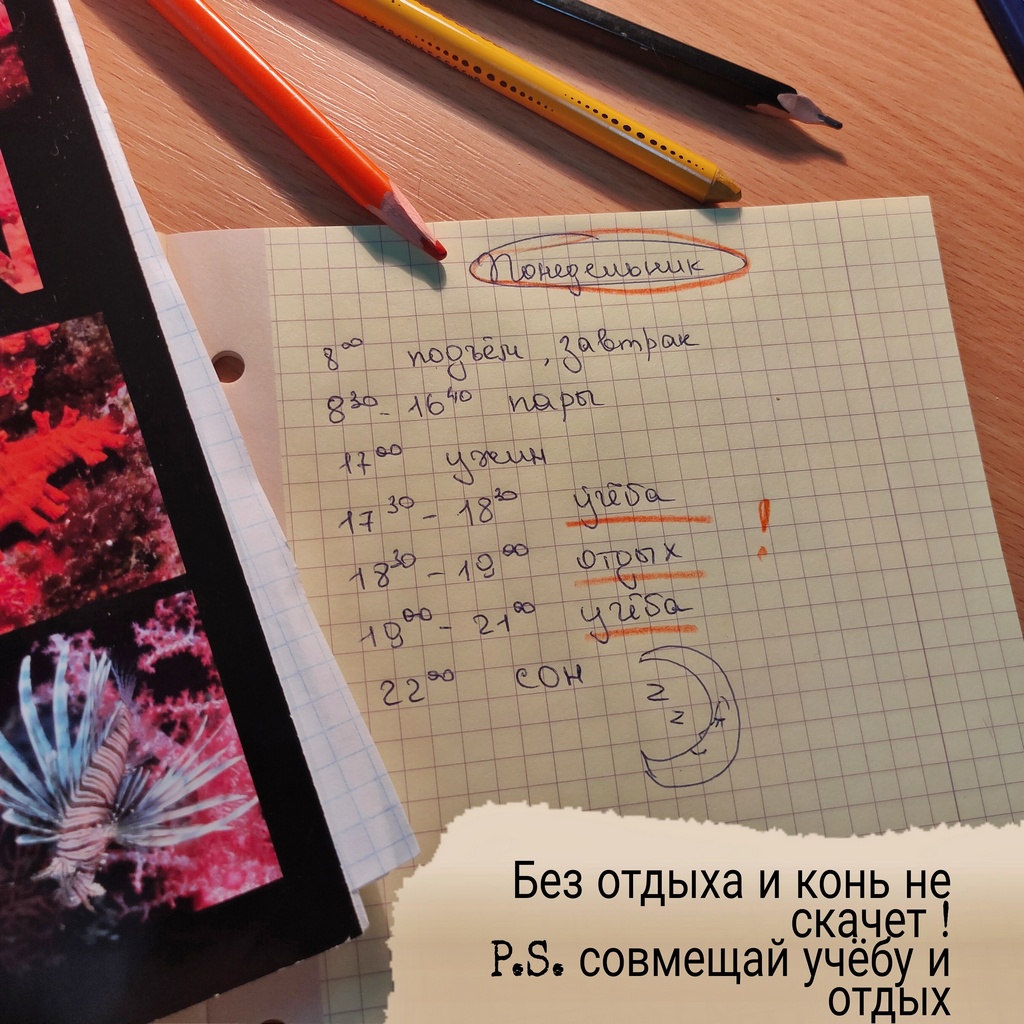 Понедельник
8⁰⁰ подъём, завтрак
8³⁰ - 16⁴⁰ пары
17⁰⁰ ужин
17³⁰ - 18³⁰ учёба !
18³⁰ - 19⁰⁰ отдых
19⁰⁰ - 21⁰⁰ учёба
22⁰⁰ сон
z
z
Без отдыха и конь не
скачет !
P.S. совмещай учёбу и
отдых